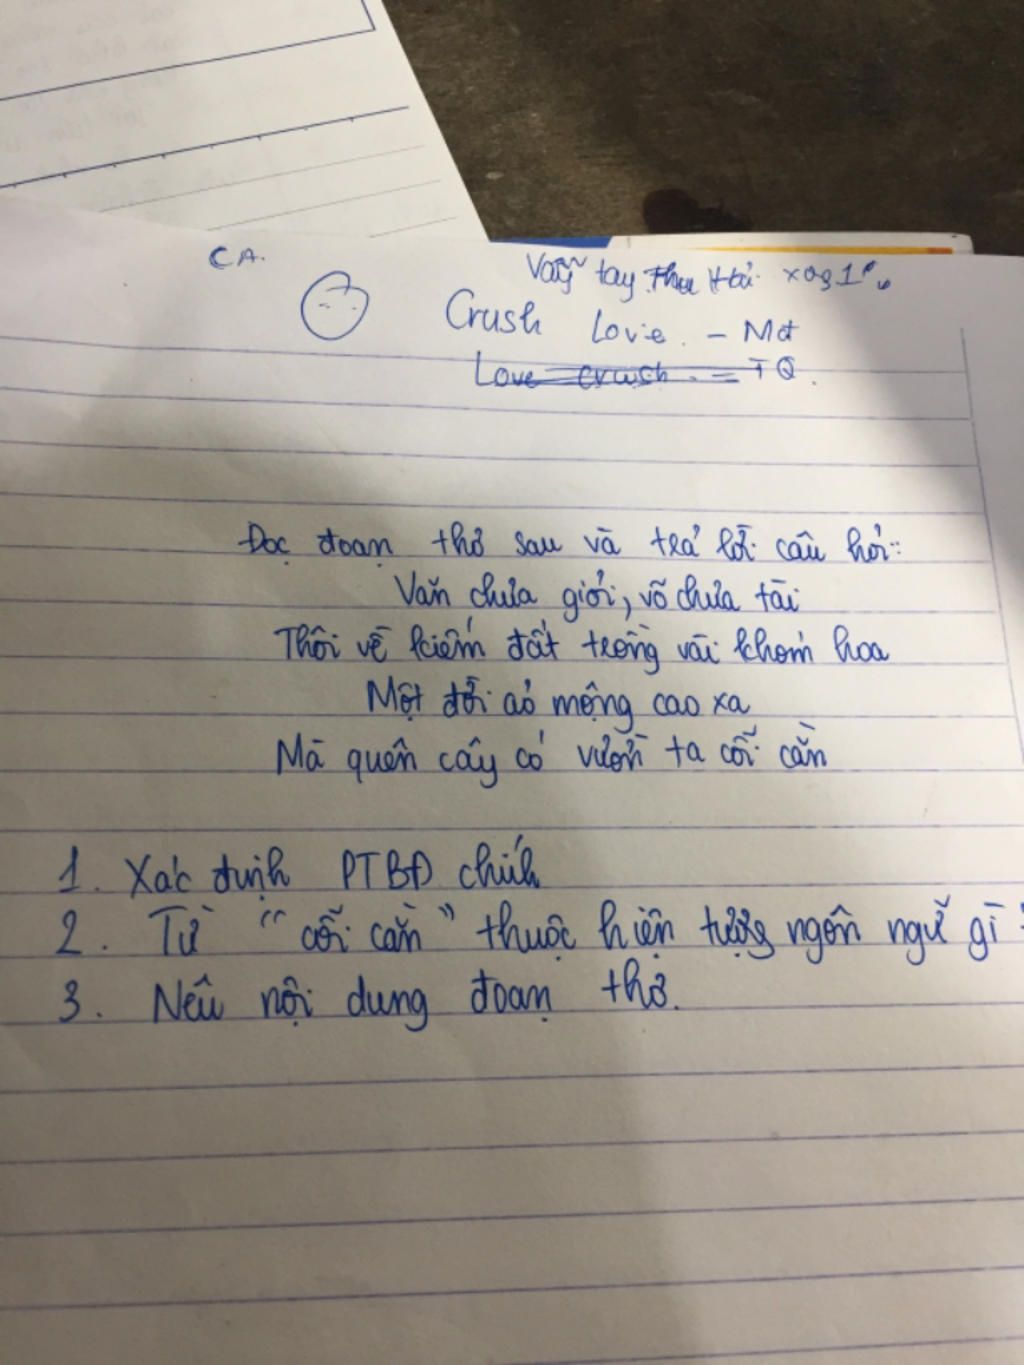 CA.
Vẫy tay thu
Crush Love. - Md
Love crush. = TQ.
Đọc đoạn thơ sau và trả lời câu hỏi:
Văn chưa giỏi, võ chưa tài
Thôi về kiếm đất trồng vài khóm hoa
Một đời ảo mộng cao xa
Mà quên cây cỏ vườn ta cỗi cằn
1. Xác định PTBĐ chính
2. Từ "cỗi cằn" thuộc hiện tượng ngôn ngữ gì?
3. Nêu nội dung đoạn thơ.